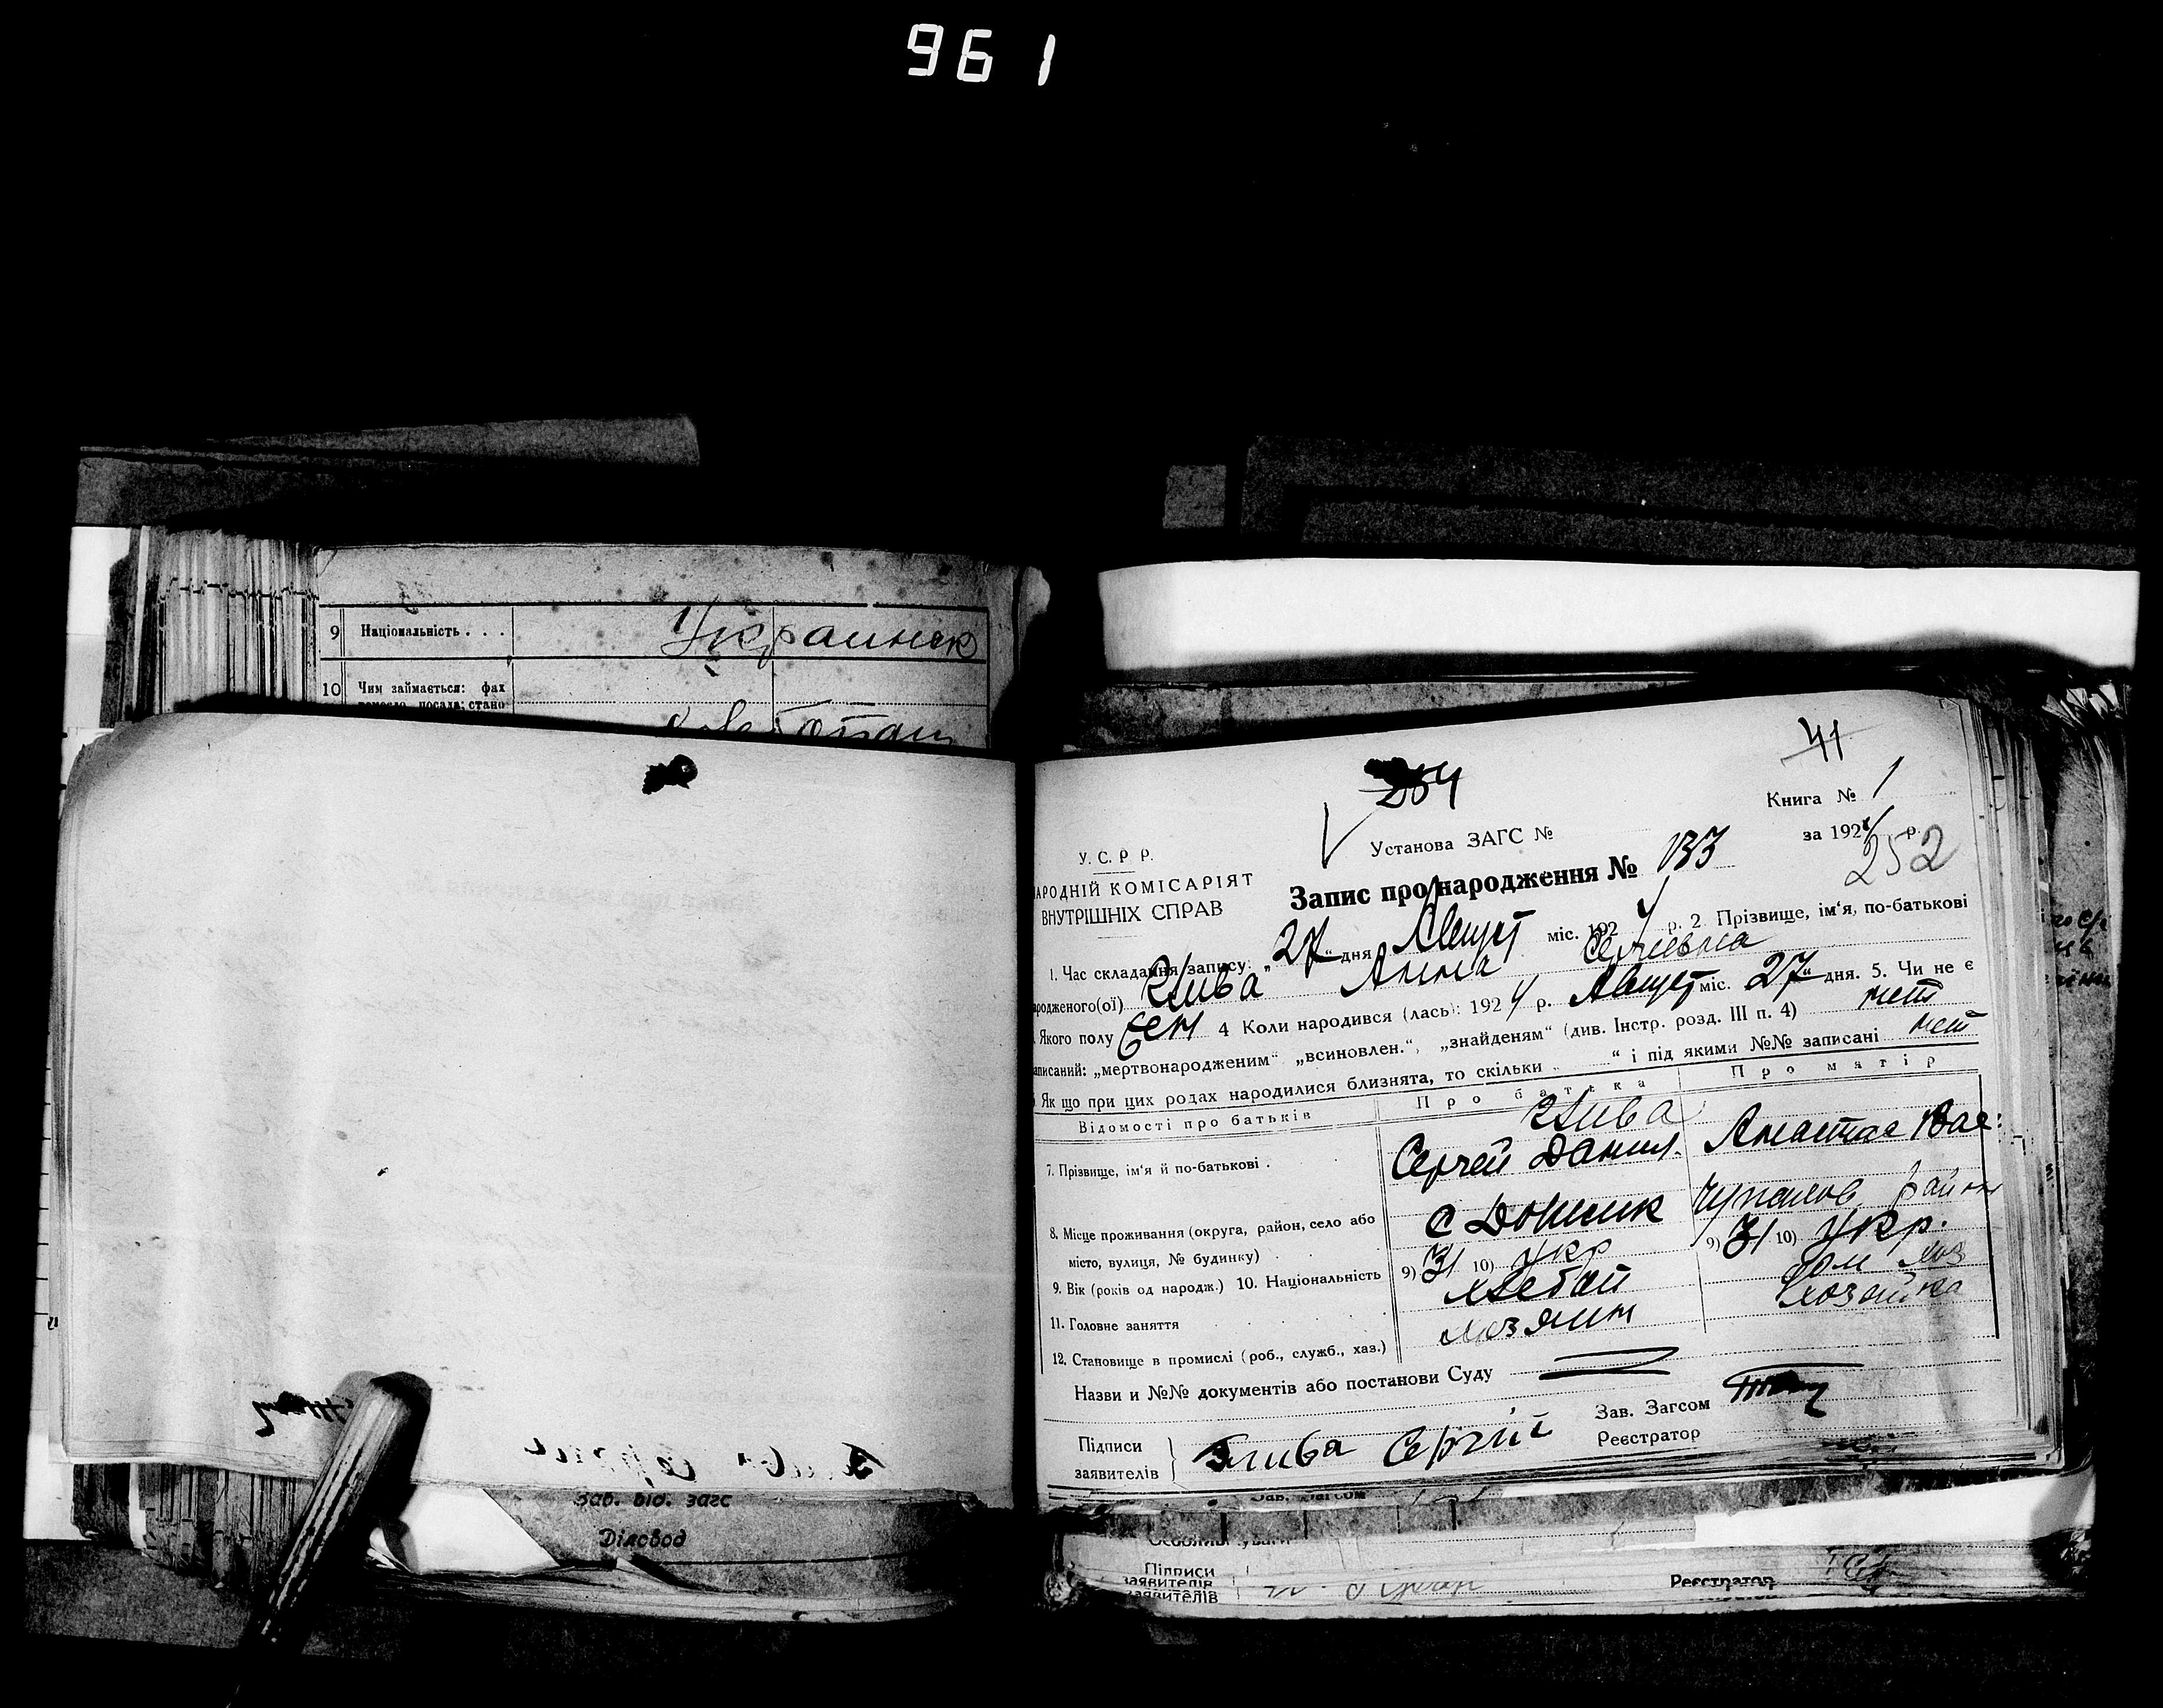 961
9 Національність . . .
Украинск
10 Чим займається: фах
Зав. від. загс
Діловод
41
Книга № 1
за 1924 р.
252
Установа ЗАГС №
У. С. Р. Р.
АРОДНІЙ КОМІСАРІЯТ
ВНУТРІШНІХ СПРАВ
Запис про народження № 133
1. Час складання запису: „27“ дня Август міс. 1924 р. 2. Прізвище, ім'я, по-батькові
ародженого(ої) Глива Анна Сергиевна
Якого полу жен 4 Коли народився (лась): 1924 р. Август міс. 27“ дня. 5. Чи не є
аписаний: „мертвонародженим“ „всиновлен.“, „знайденям“ (див. Інстр. розд. III п. 4) нет
Як що при цих родах народилися близнята, то скільки “ і під якими №№ записані нет
Відомості про батьків Про батька Про матір
7. Прізвище, ім'я й по-батькові . Глива Сергей Данил. Анастас Вас:
8. Місце проживання (округа, район, село або
місто, вулиця, № будинку) с район
9. Вік (років од народж.) 10. Національність 9) 31 10) Укр 9) 31 10) Укр.
11. Головне заняття хлебоп дом хоз
12. Становище в промислі (роб., служб., хаз.) хозяин хозяйка
Назви и №№ документів або постанови Суду
Підписи
заявителів
Глива Сергій
Зав. Загсом
Реєстратор
Підписи
заявителів
Реєстратор